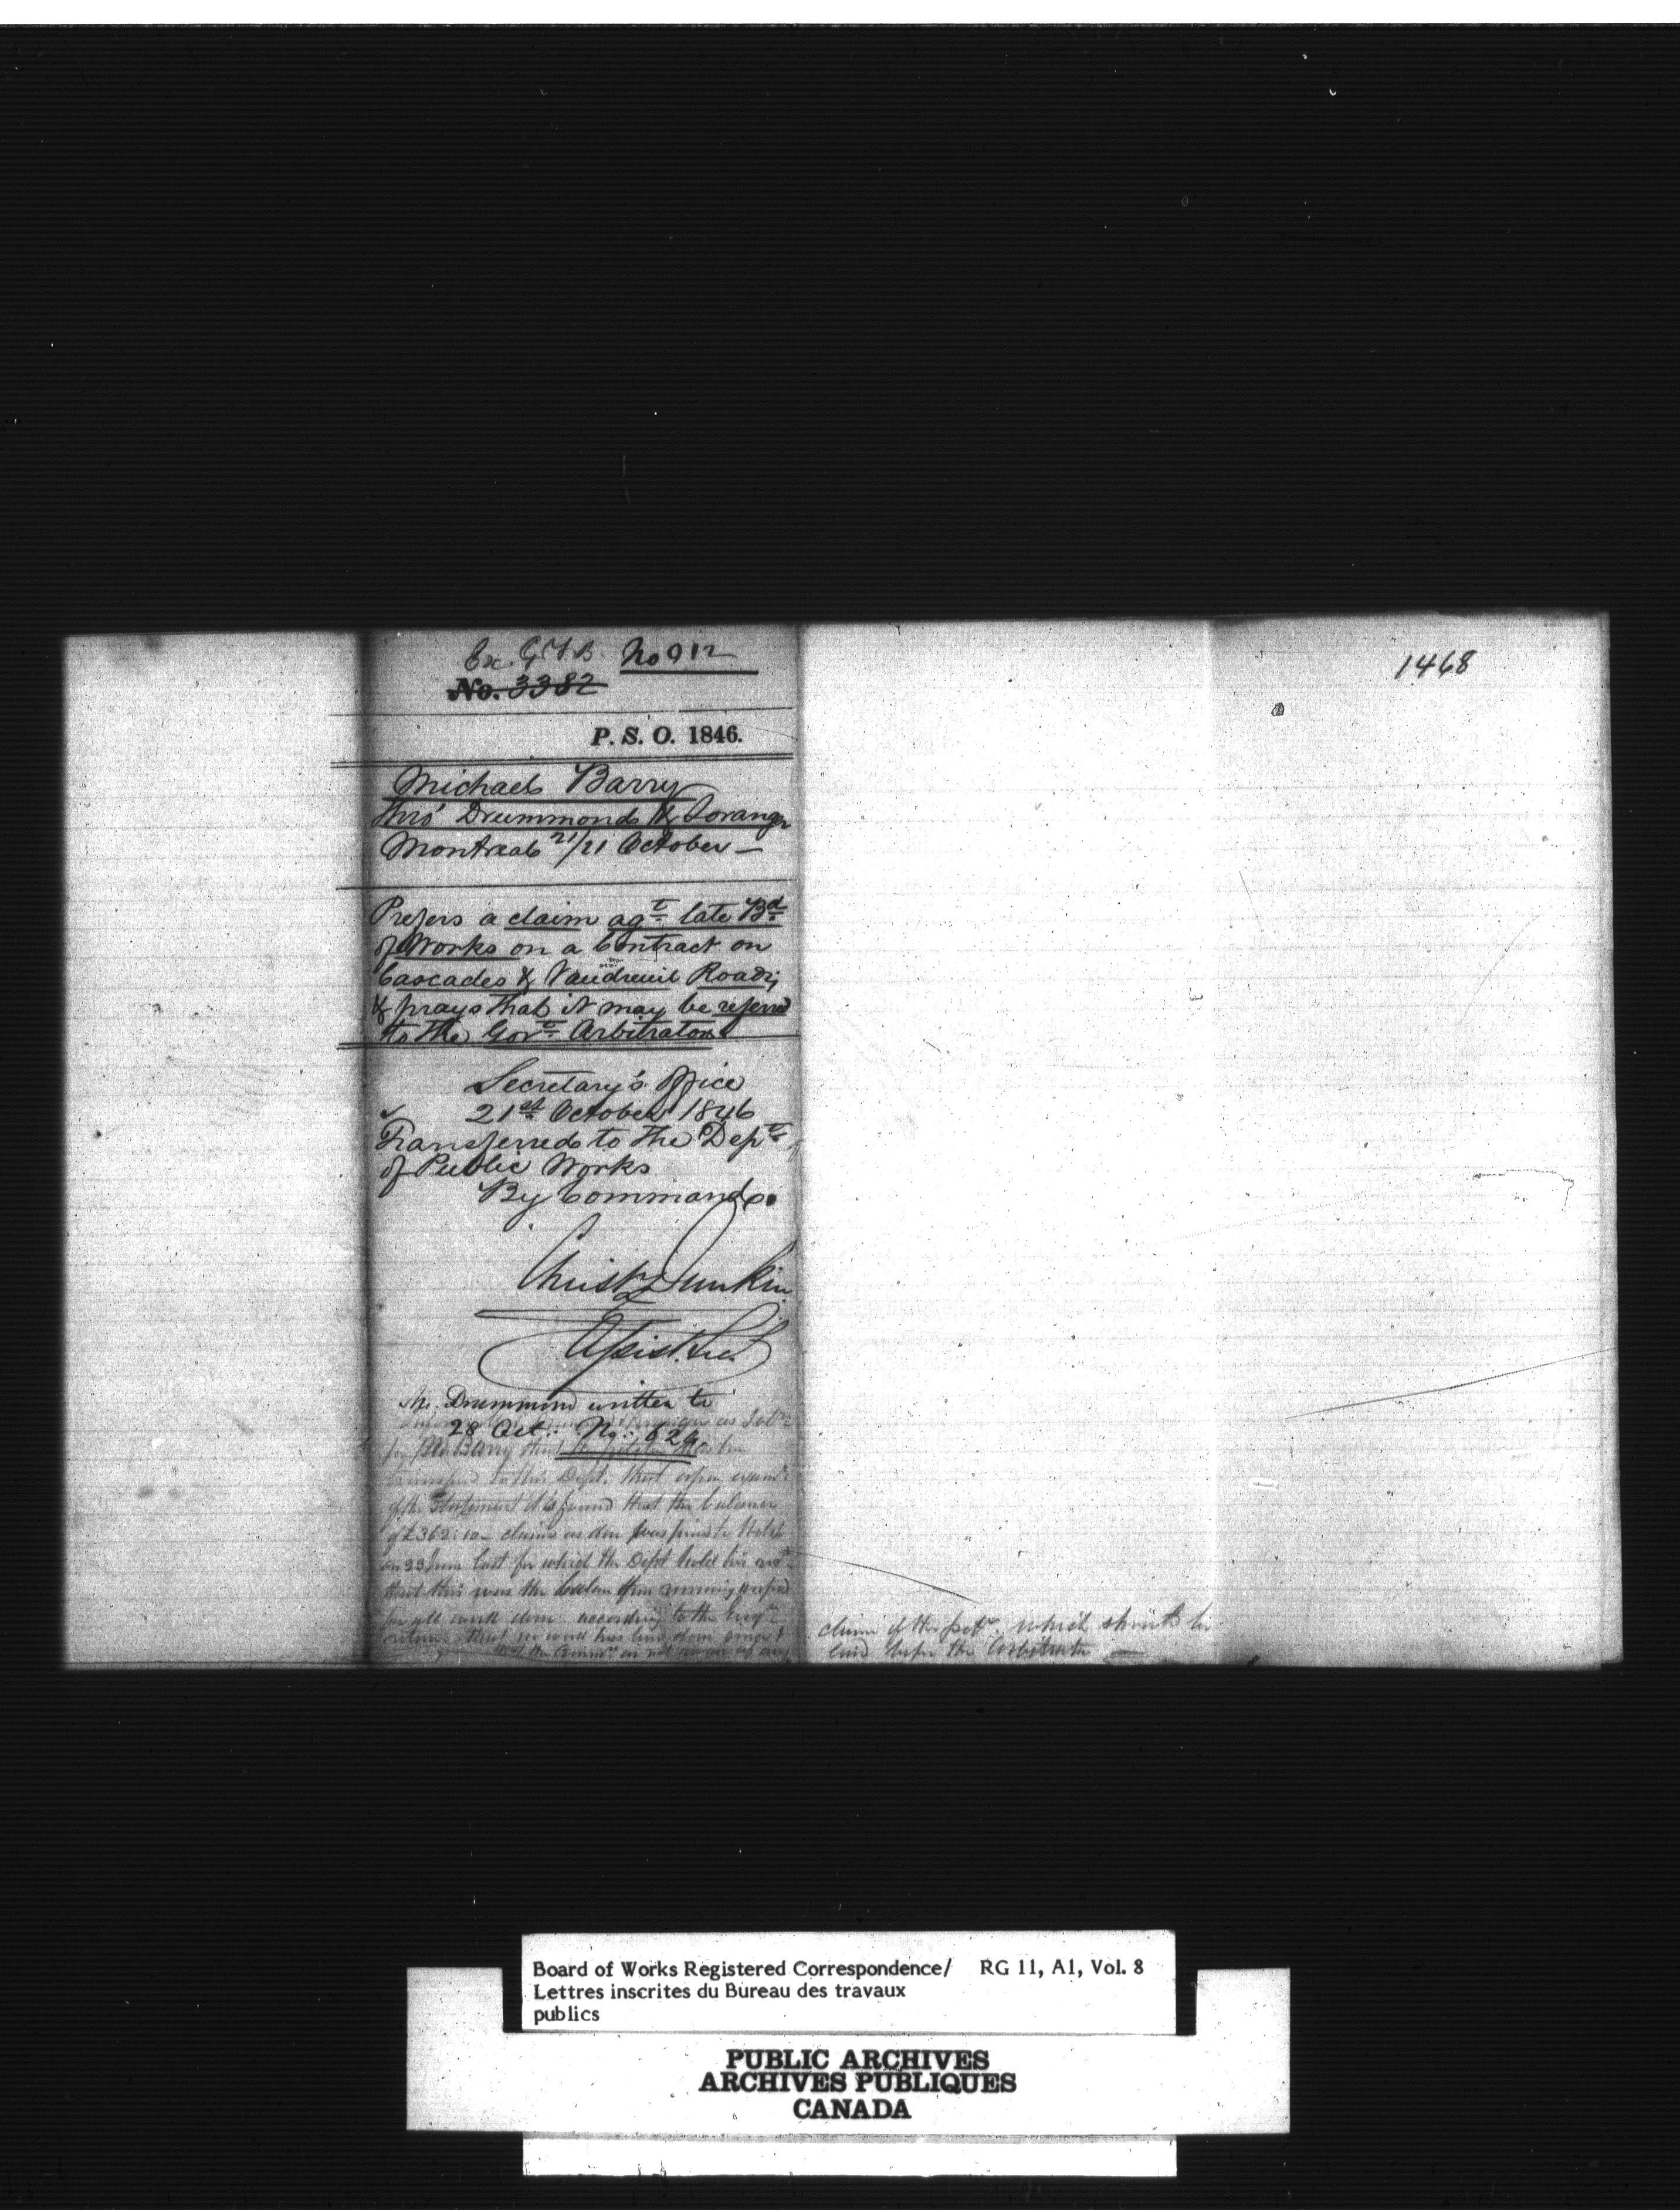 Ex. No 912
No. 3382
P. S. O. 1846.
Michael Barry
thro' Drummond & Loranger
Montreal 21/21 October —
Prefers a claim agt. late Bd.
of Works on a Contract on
Cascades & Vaudreuil Road;
& prays that it may be referred
to the Govt. Arbitrators
Secretary's Office
21st October 1846
Transferred to the Dept.
of Public Works
By Command
Christr Dunkin
Assist. Sec.
Mr. Drummond written to
28 Oct.: No.: 624
as Solr.
for Mr Barry that
to this Dept. that upon exam
of the Statement it is found that the balance
of £362:10 – claimed as due was paid to
on 23 June last for which the Dept hold his
that this was the balance then remaining unpaid
for all work done according to the Engr.
return that no work has been done since &
that the not aware of any
claim of the petr. which should be
laid before the Arbitrators —
1468
Board of Works Registered Correspondence/ RG 11, A1, Vol. 8
Lettres inscrites du Bureau des travaux
publics
PUBLIC ARCHIVES
ARCHIVES PUBLIQUES
CANADA